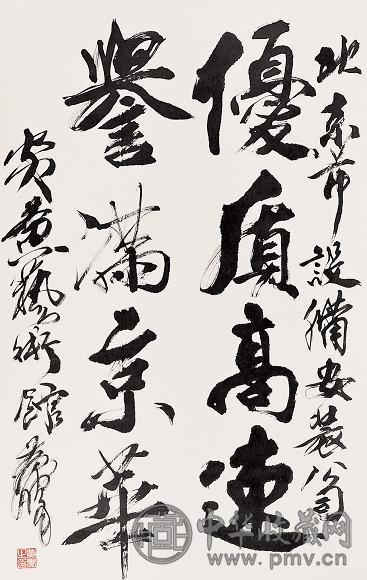 北京市設備安裝公司
優質高速
譽滿京華
炎黃藝術館 黃胄
中华收藏网
www.pmv.cn